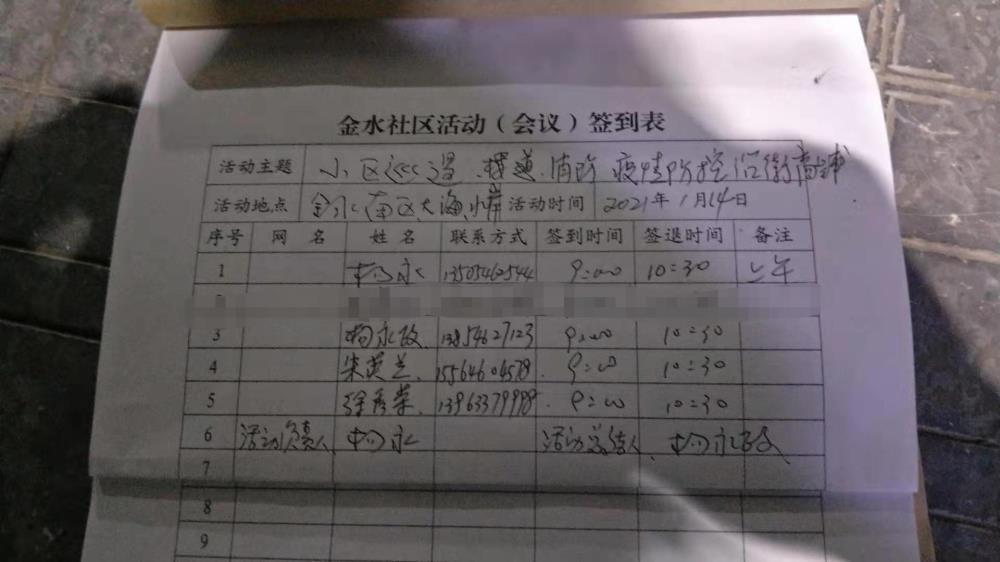 金水社区活动（会议）签到表
活动主题 小区巡逻、楼道、消防 疫情防控
活动地点 金水南区大海水岸 活动时间 2021年1月14日
序号 网名 姓名 联系方式 签到时间 签退时间 备注
1 杨永 13505460544 9:00 10:30 上午
3 杨永政 13854627123 9:00 10:30
4 朱英兰 15564604578 9:00 10:30
5 徐秀荣 13963379998 9:00 10:30
6 活动负责人 杨永 活动总结人 杨永政
7
8
9